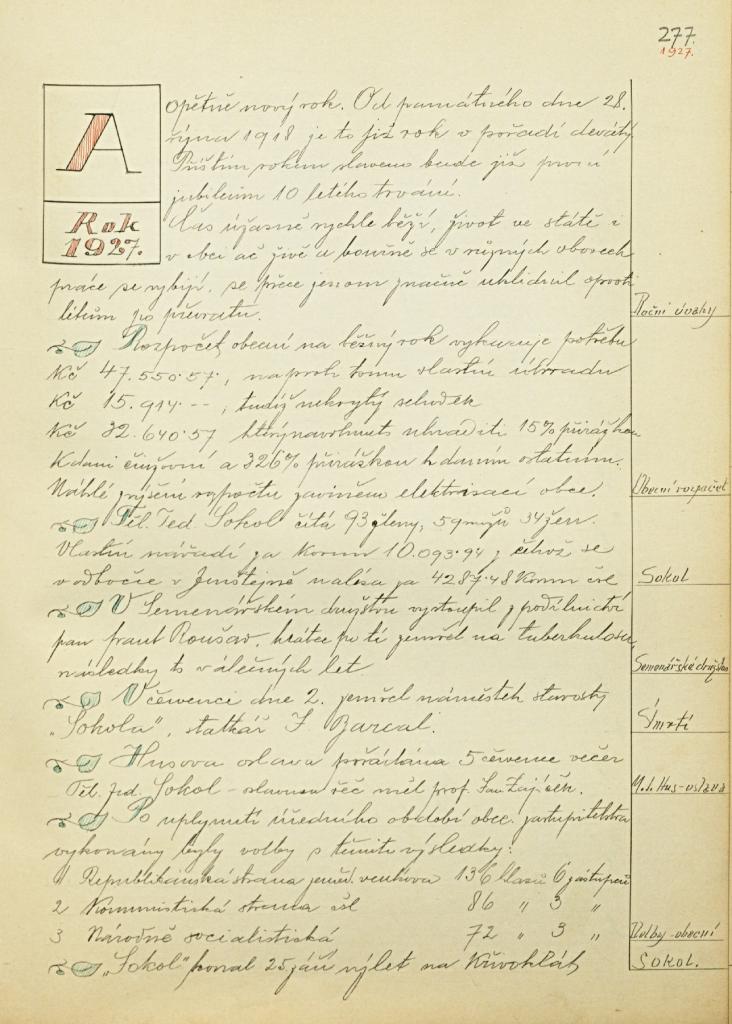 277.
1927.
A
Rok
1927.
opětně nový rok. Od památného dne 28.
října 1918 je to již rok v pořadí devátý
Příštím rokem slaveno bude již první
jubileum 10 letého trvání.
Čas úžasně rychle běží, život ve státě i
v obci ač živě a bouřně se v různých oborech
práce se vybíjí, se přece jenom značně uklidnil oproti
létům po převratu.
Roční úvahy
Rozpočet obecní na běžný rok vykazuje potřebu
Kč 47.550·57, naproti tomu vlastní úhradu
Kč 15.914·--, tudíž nekrytý schodek
Kč 32.640·57 který navrhnuto uhraditi 15% přirážkou
k dani činžovní a 326% přirážkou k daním ostatním.
Náhlé zvýšení rozpočtu zaviněno elektrisací obce.
Obecní rozpočet
Těl. Jed. Sokol čítá 93 členy, 59 mužů 34 žen.
Vlastní nářadí za Korun 10.093·94 z čehož se
v odbočce v Jenštejně nalézá za 4287·48 Korun čsl
Sokol
V Semenářském družstvu vystoupil z podílnictví
pan Frant Roušav, krátce po tí zemřel na tuberkulosu,
následky to válečných let
Semenářské družstvo
V červenci dne 2. zemřel náměstek starosty
„Sokola", statkář F. Barcal.
Úmrtí
Husova oslava pořádána 5 července večer
Těl. Jed. Sokol - slavnou řeč měl prof. Jan Zajíček.
M. J. Hus-oslava
Po uplynutí úředního období obec. zastupitelstva
vykonány byly volby s těmito výsledky:
1 Republikánská strana zeměd. venkova 136 hlasů 6 zástupců
2 Kommunistická strana čsl 86 „ 3 „
3 Národně socialistická 72 „ 3 „
Volby obecní
„Sokol" konal 25 září výlet na Křivoklát
Sokol.